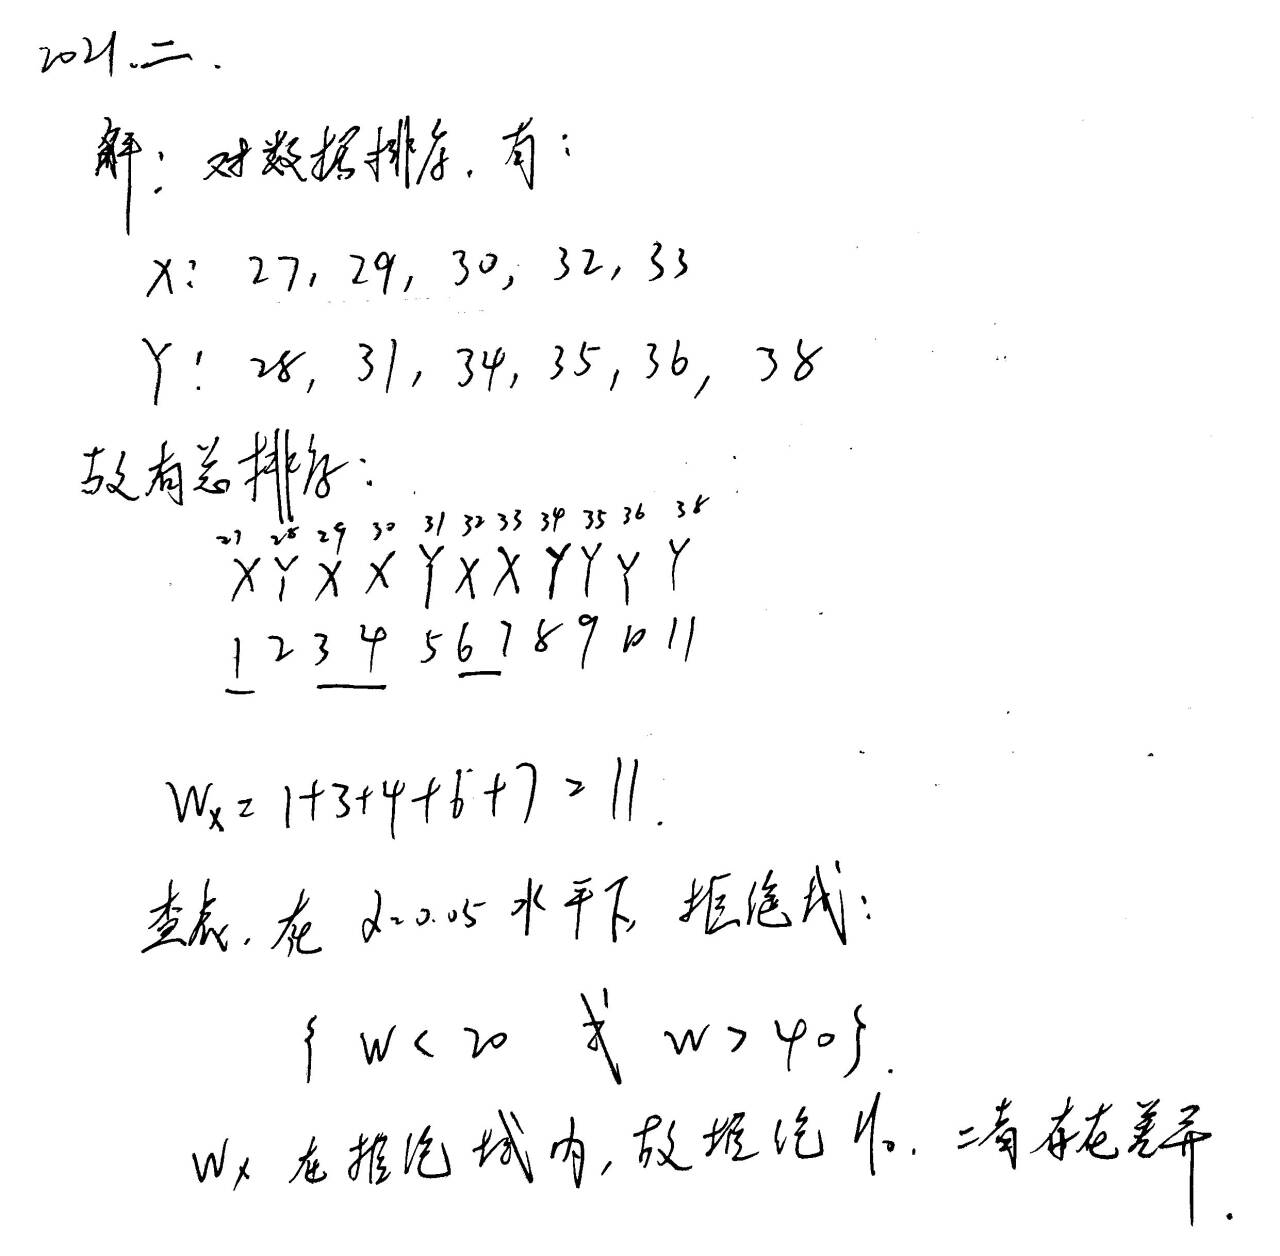 2021.二.
解：对数据排序.有：
X：27，29，30，32，33
Y：28，31，34，35，36，38
故有总排序：
27 28 29 30 31 32 33 34 35 36 38
X Y X X Y X X Y Y Y Y
1 2 3 4 5 6 7 8 9 10 11
Wx = 1+3+4+6+7 = 11.
查表.在 α=0.05 水平下，拒绝域：
{ W < 20 或 W > 40 }.
Wx 在拒绝域内，故拒绝 H0. 二者存在差异.